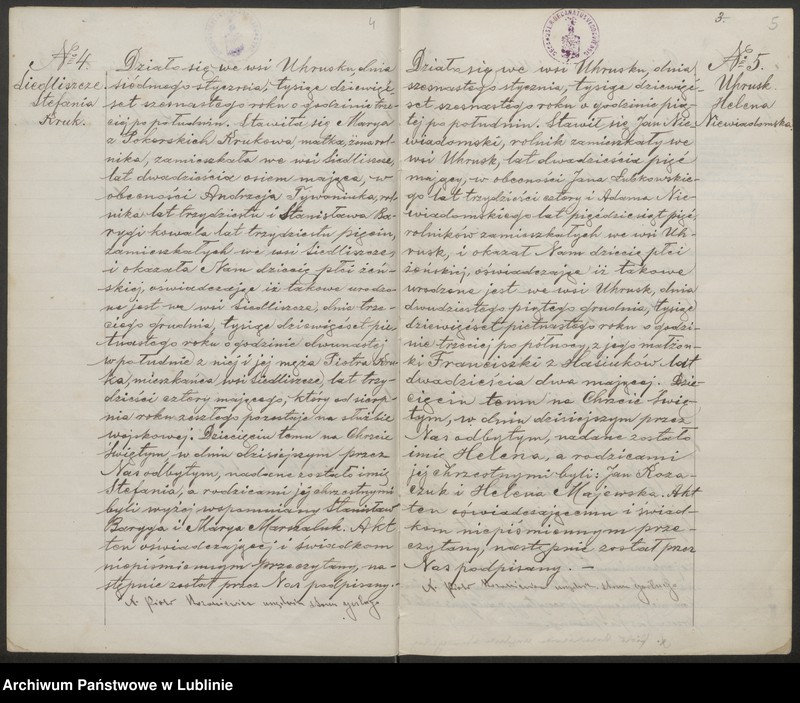 4
№ 4.
Siedliszcze
Stefania
Kruk.
Działo się we wsi Uhrusku, dnia
siódmego stycznia, tysiąc dziewięć-
set szesnastego roku o godzinie trze-
ciej po południu. Stawiła się Marya
z Sokorskich Krukowa, matka, żona rol-
nika, zamieszkała we wsi Siedliszcze,
lat dwadzieścia osiem mająca, w
obecności Andrzeja Tywoniuka, rol-
nika lat trzydziestu i Stanisława Ba-
rygi kowala lat trzydziestu pięciu,
zamieszkałych we wsi Siedliszcze,
i okazała Nam dziecię płci żeń-
skiej, oświadczając iż takowe urodzo-
ne jest we wsi Siedliszcze, dnia trze-
ciego grudnia, tysiąc dziewięćset pięt-
nastego roku o godzinie dwunastej
w południe z niej i jej męża Piotra Kru-
ka, mieszkańca wsi Siedliszcze, lat trzy-
dzieści cztery mającego, który od sierp-
nia roku zeszłego pozostaje na służbie
wojskowej. Dziecięciu temu na Chrzcie
Świętym, w dniu dzisiejszym przez
Nas odbytym, nadane zostało imię
Stefania, a rodzicami jej chrzestnymi
byli wyżej wspomniany Stanisław
Baryga i Marya Marszaluk. Akt
ten oświadczającej i świadkom
niepiśmiennym przeczytany, na-
stępnie został przez Nas podpisany.
X. Piotr stanu cywilnego
3.
5
№ 5.
Uhrusk
Helena
Niewiadomska.
Działo się we wsi Uhrusku, dnia
szesnastego stycznia, tysiąc dziewięć-
set szesnastego roku o godzinie pią-
tej po południu. Stawił się Jan Nie-
wiadomski, rolnik zamieszkały we
wsi Uhrusk, lat dwadzieścia pięć
mający, w obecności Jana Łubkowskie-
go lat trzydzieści cztery i Adama Nie-
wiadomskiego lat pięćdziesiąt pięć
rolników zamieszkałych we wsi Uh-
rusk, i okazał Nam dziecię płci
żeńskiej, oświadczając iż takowe
urodzone jest we wsi Uhrusk, dnia
dwudziestego piątego grudnia, tysiąc
dziewięćset piętnastego roku o godzi-
nie trzeciej po północy z jego małżon-
ki Franciszki z Hasiuków lat
dwadzieścia dwa mającej. Dzie-
cięciu temu na Chrzcie Świę-
tym, w dniu dzisiejszym przez
Nas odbytym, nadane zostało
imię Helena, a rodzicami
jej chrzestnymi byli: Jan Koza-
czuk i Helena Majewska. Akt
ten oświadczającemu i świad-
kom niepiśmiennym prze-
czytany, następnie został przez
Nas podpisany. —
X. Piotr stanu cywilnego
Archiwum Państwowe w Lublinie